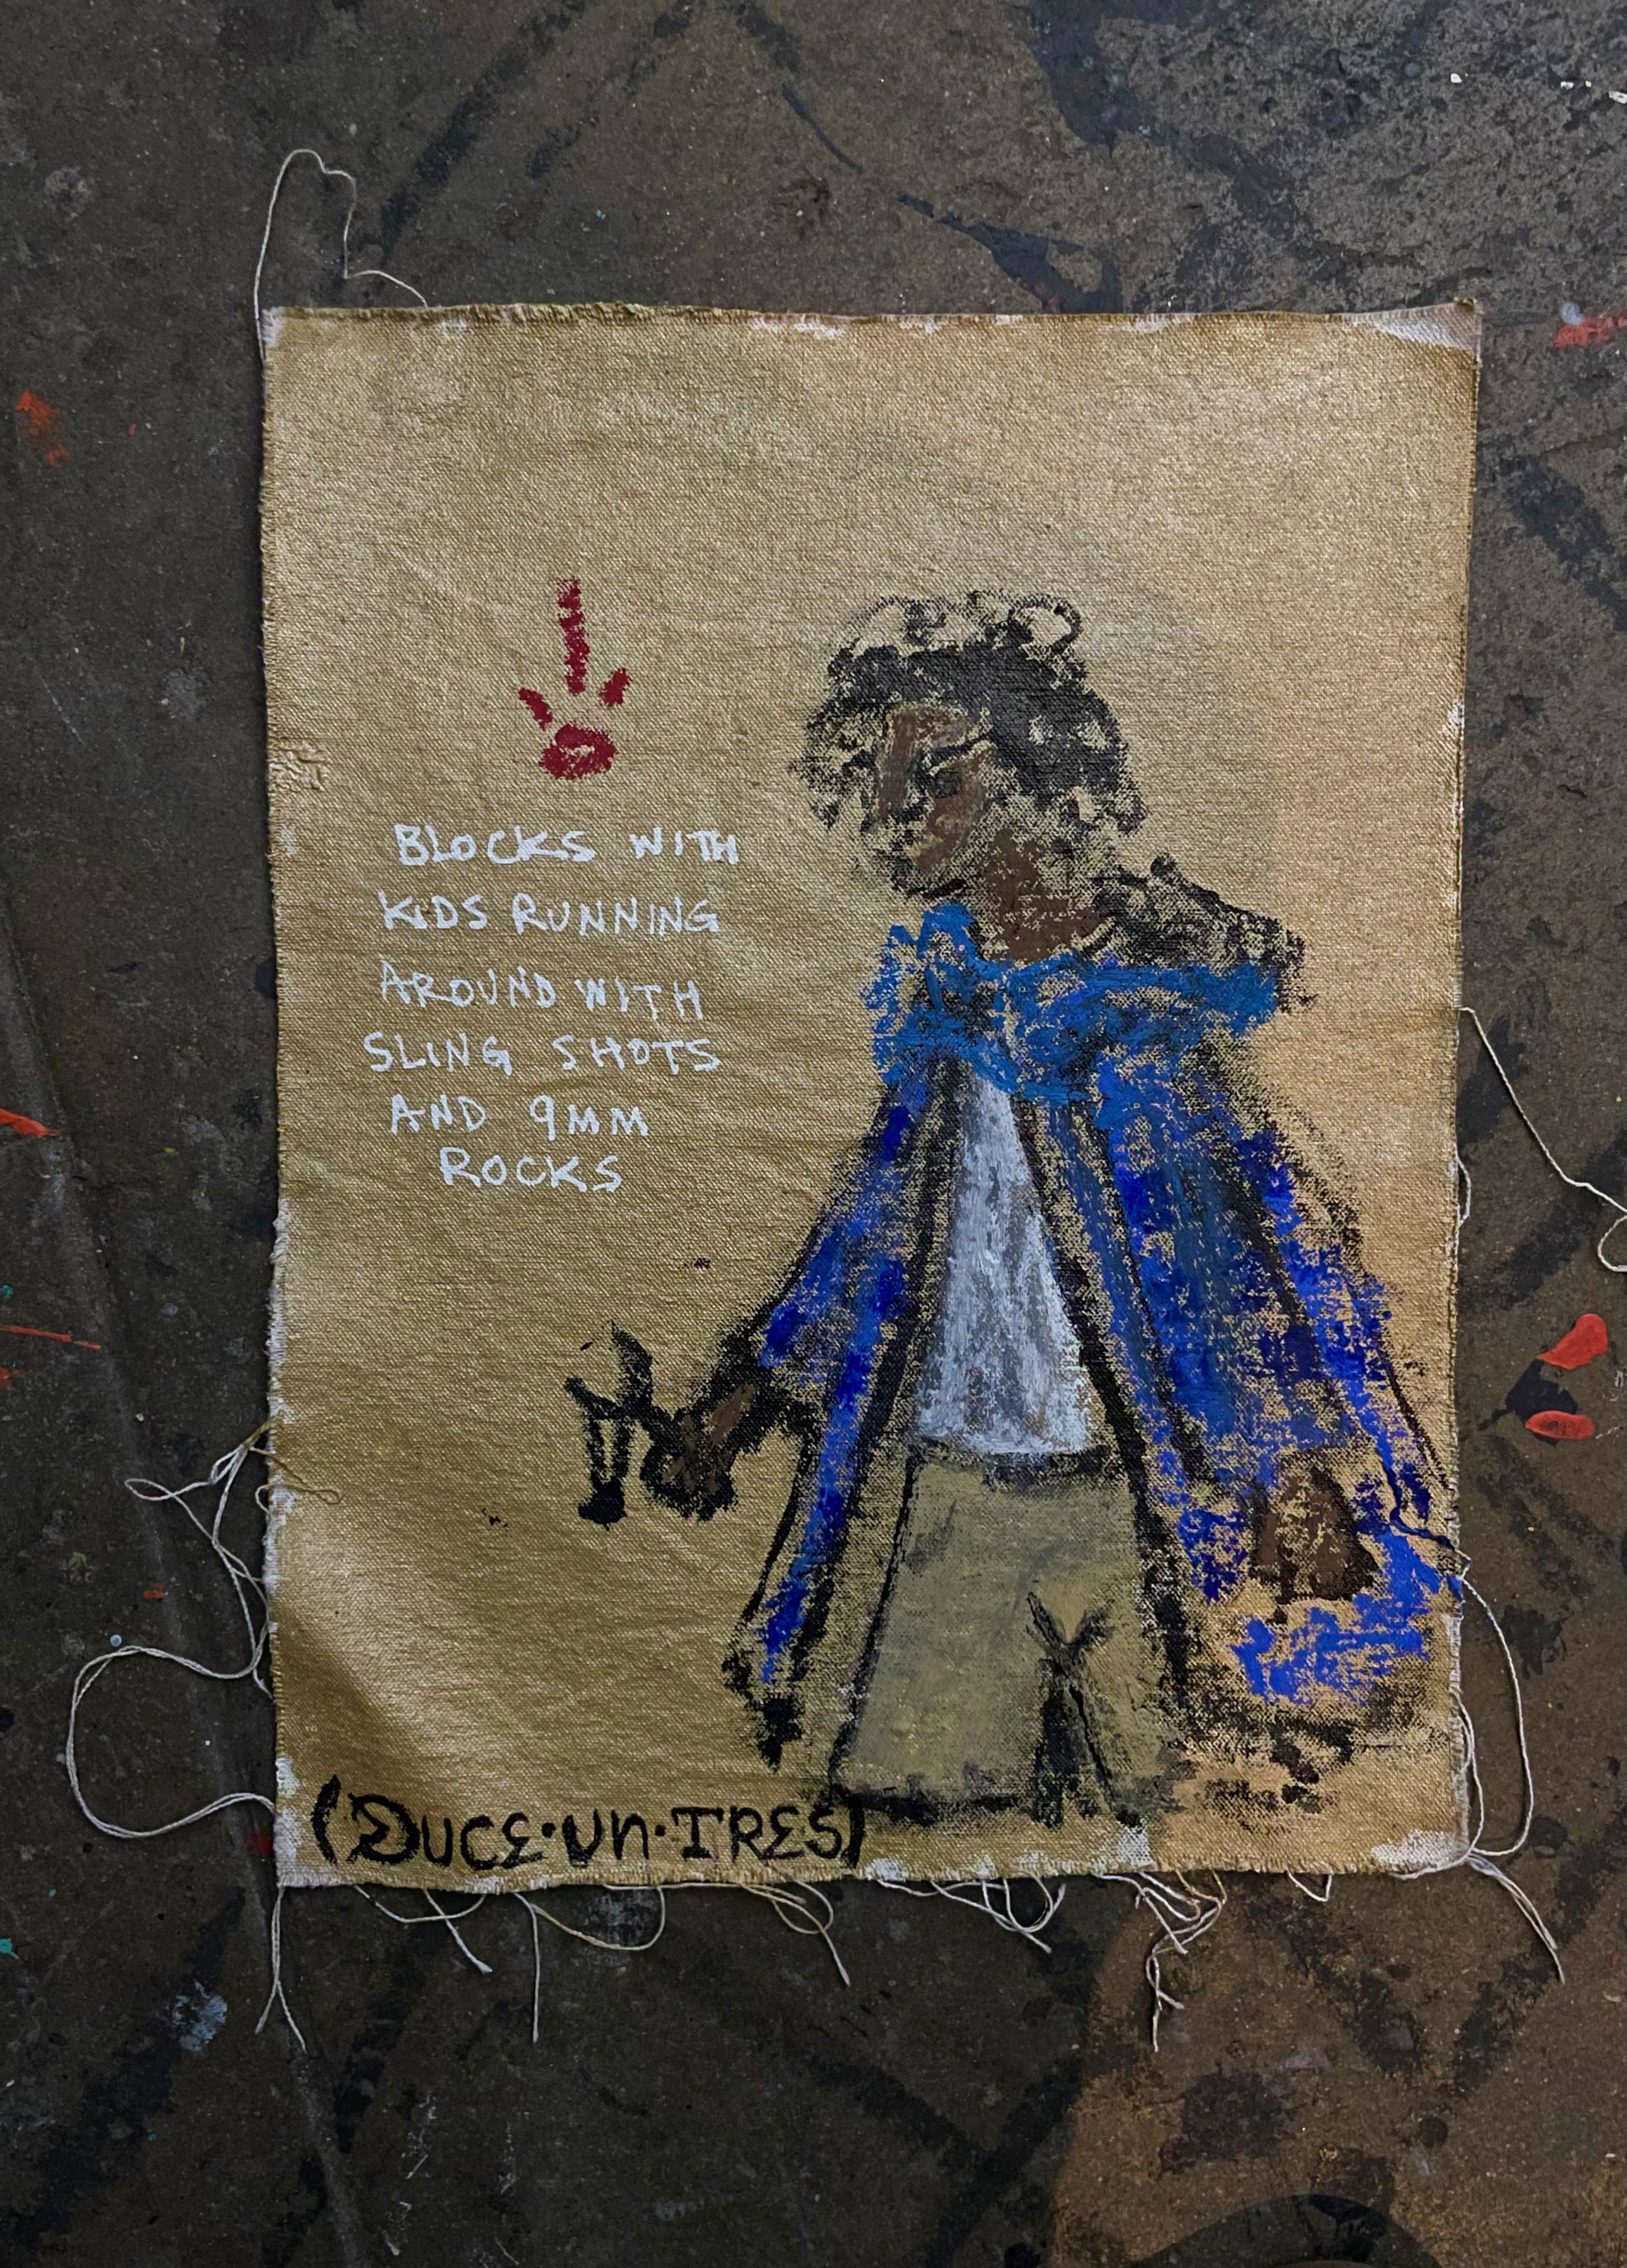 BLOCKS WITH
KIDS RUNNING
AROUND WITH
SLING SHOTS
AND 9MM
ROCKS
(DUCE·UN·TRES)